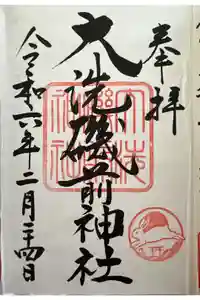 奉拝
大洗磯前神社
令和六年二月二十四日